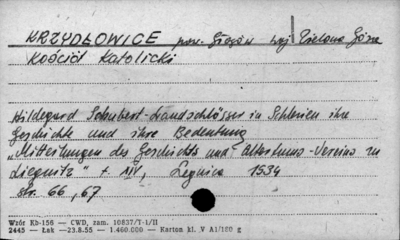 KRZYDŁOWICE pow. Głogów woj. Zielona Góra
Kościół Katolicki
Hildegard Schubert-Landschlösser in Schlesien ihre
Geschichte und ihre Bedeutung
„Mitteilungen des Geschichts und Altertums-Vereins zu
Liegnitz" t. XIV, Legnica 1934
str. 66, 67
Wzór Kb-156 — CWD, zam. 10837/T-1/II
2445 — Łak — 23.8.55 — 1.460.000 — Karton kl. V A1/180 g